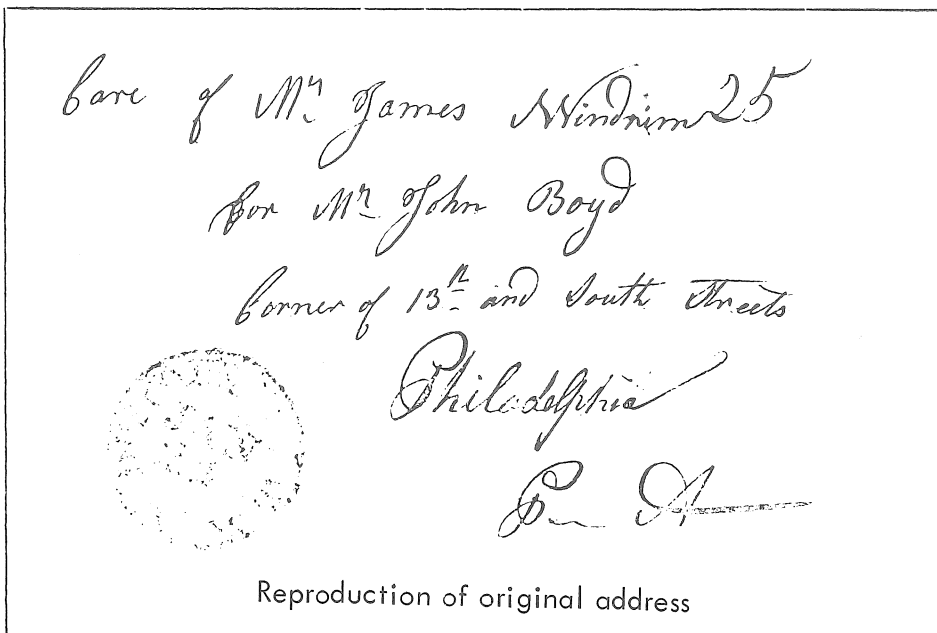 Care of Mr. James Windrim 25
For Mr. John Boyd
Corner of 13th and South Streets
Philadelphia
Reproduction of original address